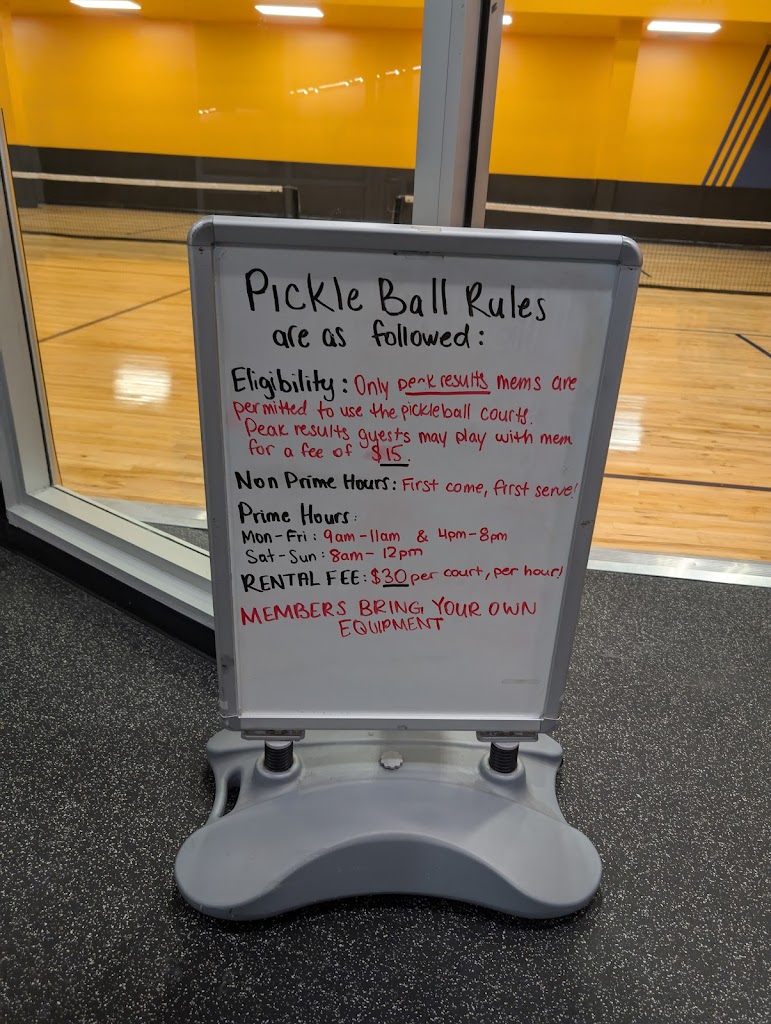 Pickle Ball Rules
are as followed:
Eligibility: Only peak results mems are
permitted to use the pickleball courts.
Peak results guests may play with mem
for a fee of $15.
Non Prime Hours: First come, first serve!
Prime Hours:
Mon-Fri: 9am-11am & 4pm-8pm
Sat-Sun: 8am-12pm
RENTAL FEE: $30 per court, per hour!
MEMBERS BRING YOUR OWN
EQUIPMENT